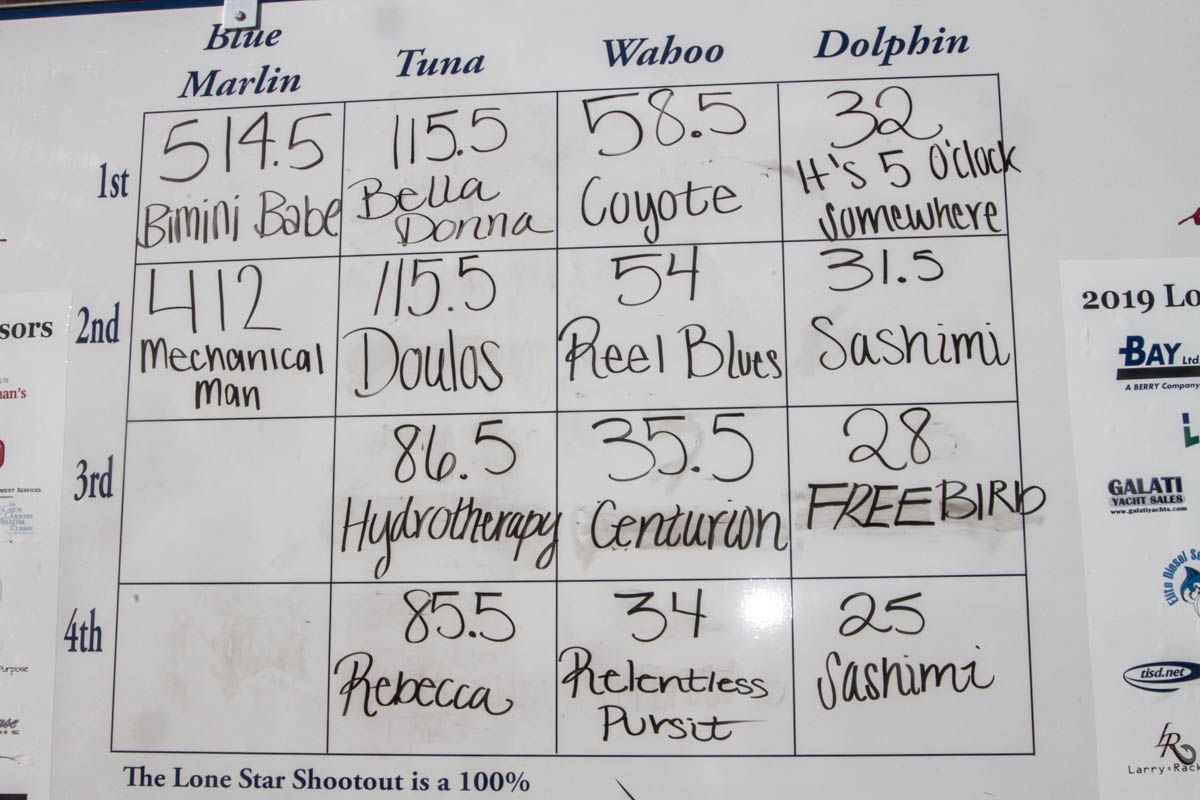 Blue
Marlin
Tuna
Wahoo
Dolphin
1st
514.5
Bimini Babe
115.5
Bella
Donna
58.5
Coyote
32
It's 5 O'clock
Somewhere
2nd
412
Mechanical
Man
115.5
Doulos
54
Reel Blues
31.5
Sashimi
3rd
86.5
Hydrotherapy
35.5
Centurion
28
FREEBIRD
4th
85.5
Rebecca
34
Relentless
Pursit
25
Sashimi
The Lone Star Shootout is a 100%
sors
an's
MENT SERVICES
Purpose
2019 Lo
BAY Ltd
A BERRY Company
GALATI
YACHT SALES
www.galatiyachts.com
Elite Diesel Se
tisd.net
LR
Larry Rack